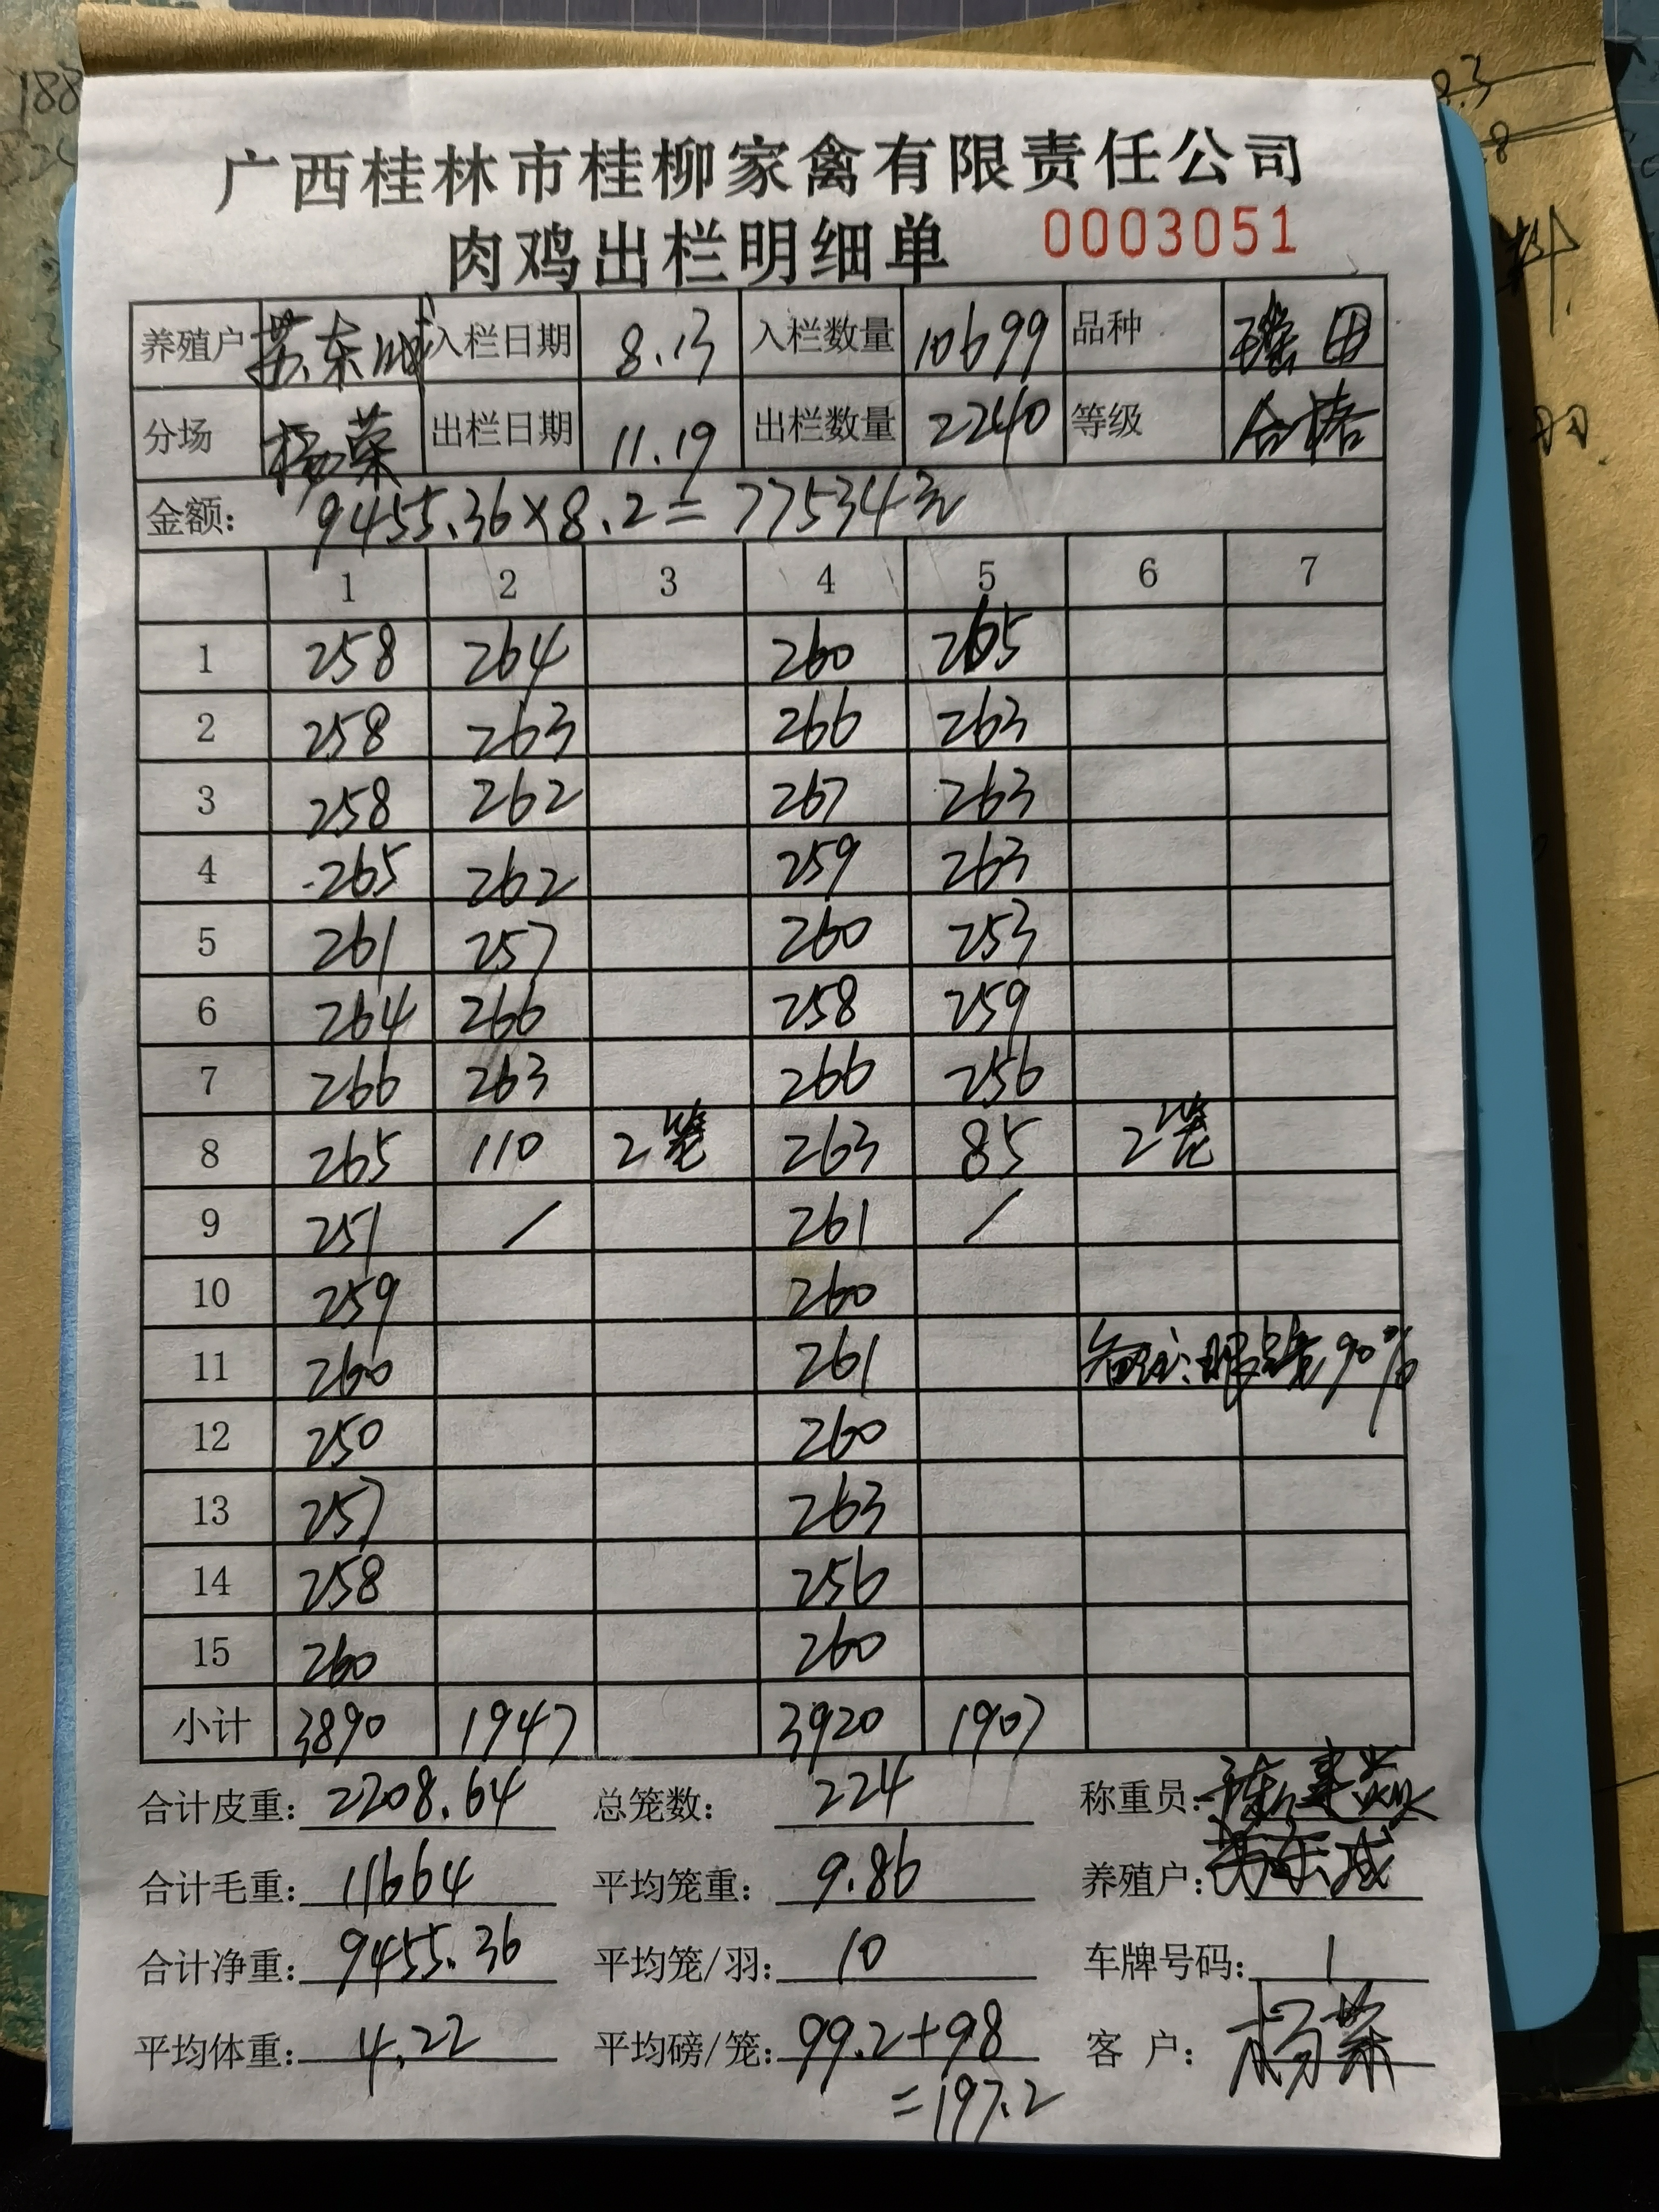 188
8.3
8
广西桂林市桂柳家禽有限责任公司
肉鸡出栏明细单 0003051
养殖户 苏东成 入栏日期 8.13 入栏数量 10699 品种 瑶田
分场 杨荣 出栏日期 11.19 出栏数量 2240 等级 合格
金额: 9455.36×8.2=77534元
1 2 3 4 5 6 7
1 258 264 260 265
2 258 263 266 263
3 258 262 267 263
4 265 262 259 263
5 261 257 260 253
6 264 266 258 259
7 266 263 266 256
8 265 110 2笼 263 85 2笼
9 251 / 261 /
10 259 260
11 260 261 备注: 90%
12 250 260
13 257 263
14 258 256
15 260 260
小计 3890 1947 3920 1907
合计皮重: 2208.64 总笼数: 224 称重员:
合计毛重: 11664 平均笼重: 9.86 养殖户: 苏东成
合计净重: 9455.36 平均笼/羽: 10 车牌号码: 1
平均体重: 4.22 平均磅/笼: 99.2+98 客 户: 杨荣
=197.2